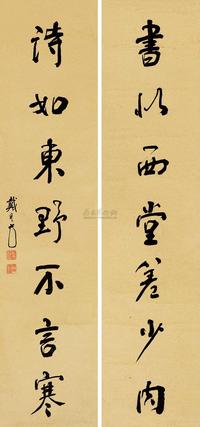 書似西堂差少肉
詩如東野不言寒
戴